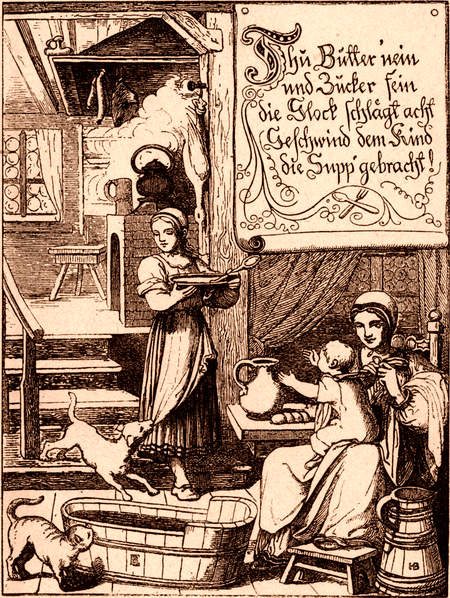 Thu Butter 'nein
und Zucker fein
die Glock schlägt acht
Geschwind dem Kind
die Supp' gebracht!
HB